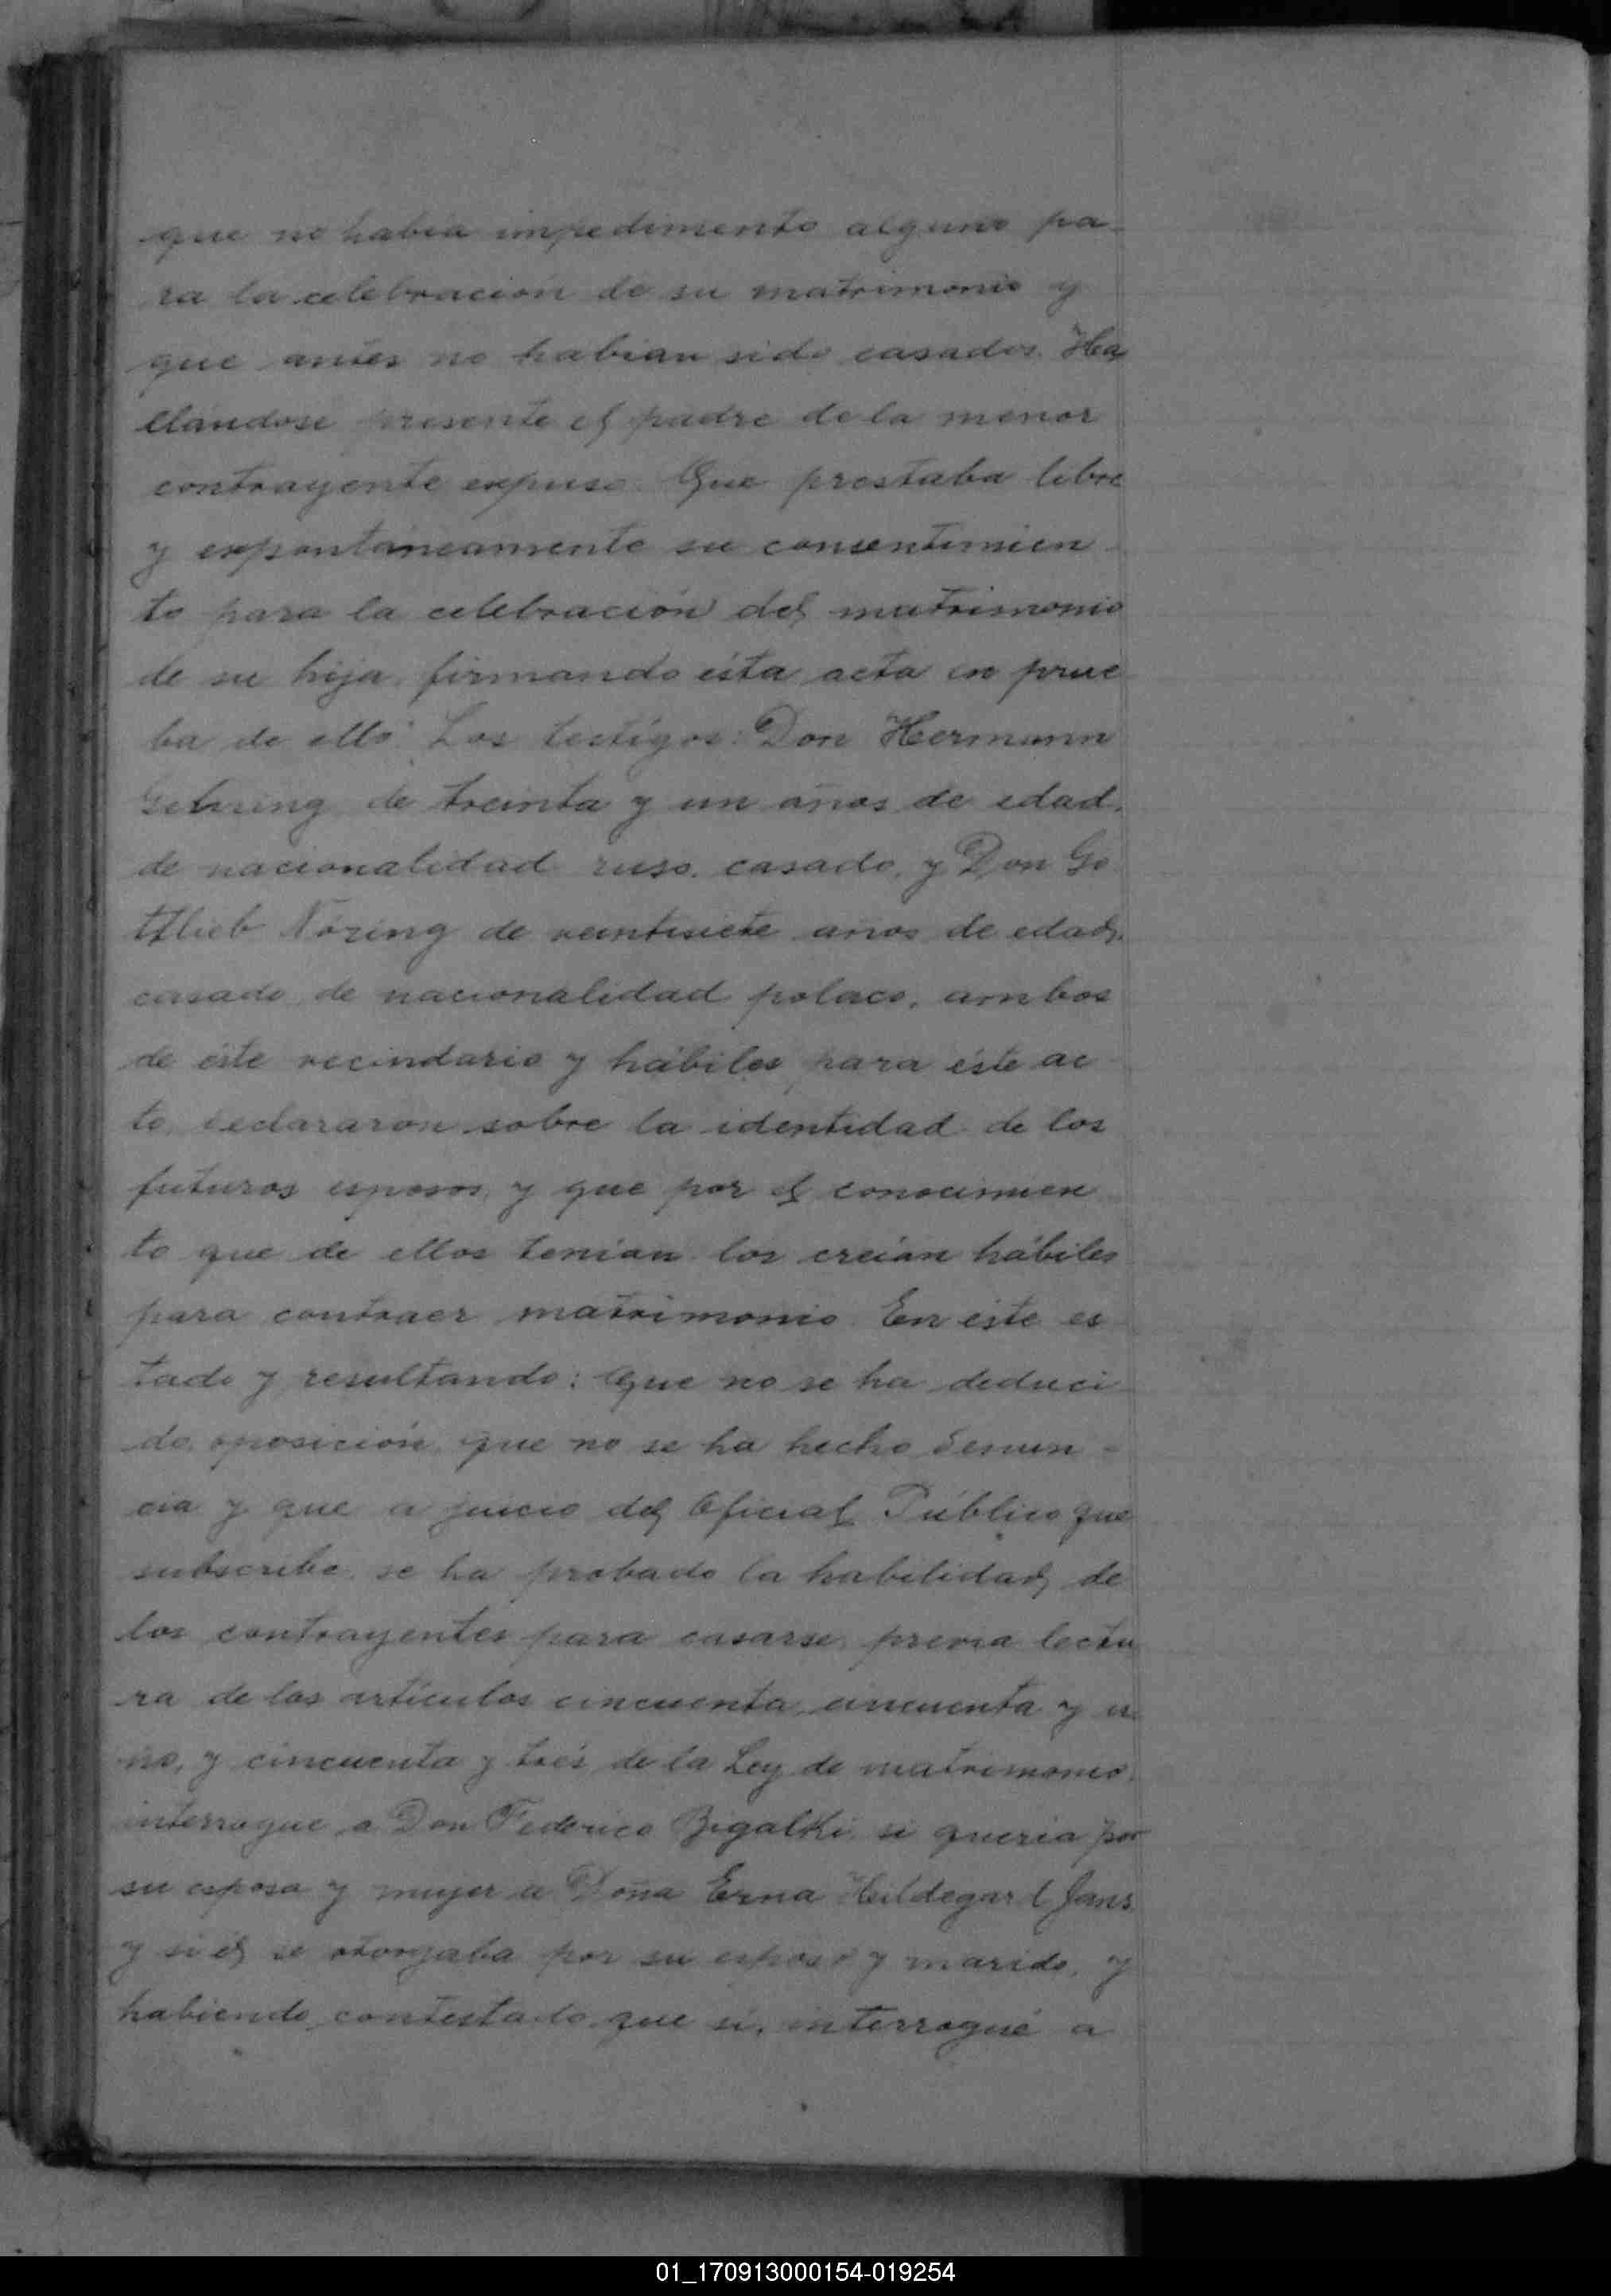 que no habia impedimento alguno pa-
ra la celebracion de su matrimonio y
que antes no habian sido casados. Ha-
llándose presente el padre de la menor
contrayente expuso: Que prestaba libre
y expontáneamente su consentimien-
to para la celebración del matrimonio
de su hija, firmando ésta acta en prue-
ba de ello. Los testigos: Don Hermann
Gehring de treinta y un años de edad,
de nacionalidad ruso, casado, y Don Go-
ttlieb Nöring de veintisiete años de edad,
casado, de nacionalidad polaco, ambos
de éste vecindario y hábiles para éste ac-
to, declararon sobre la identidad de los
futuros esposos, y que por el conocimien-
to que de ellos tenian los creían hábiles
para contraer matrimonio. En éste es-
tado y resultando: Que no se ha deduci-
do oposición, que no se ha hecho denun-
cia y que a juicio del Oficial Público que
subscribe, se ha probado la habilidad de
los contrayentes para casarse, previa lectu-
ra de los artículos cincuenta, cincuenta y u-
no, y cincuenta y trés de la Ley de matrimonio,
interrogue a Don Federico Bigalki, si queria por
su esposa y mujer a Doña Erna Hildegard Jans
y si él se otorgaba por su esposo y marido, y
habiendo contestado que si, interrogué a
01_170913000154-019254